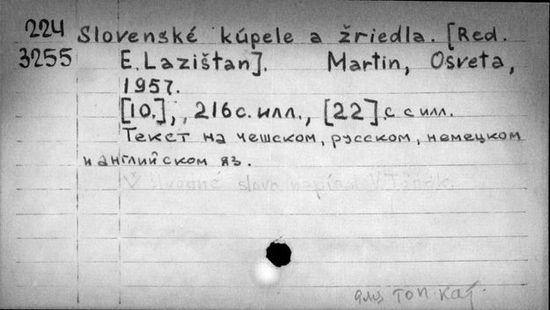 224 Slovenské kúpele a žriedla. [Red.
3255 E. Lazištan]. Martin, Osveta,
1957.
[10.], , 216с. илл., [22] с с илл.
Текст на чешском, русском, немецком
и английском яз.
slovo napísal
для топ. кат.